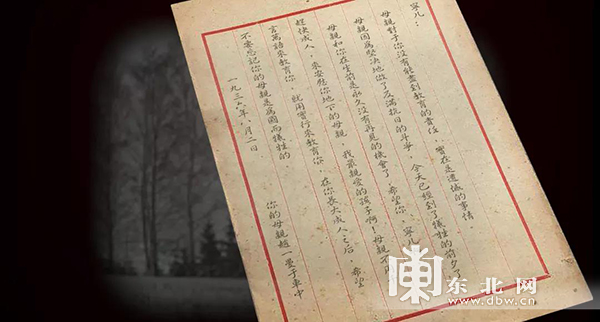 寧儿：
母親對于你沒有能盡到教育的責任，實在是遺憾的事情。
母親因為堅決地做了反滿抗日的斗爭，今天已經到了犧牲的前夕了
母親和你在生前是永久沒有再見的機會了，希望你，寧儿
趕快成人，來安慰你地下的母親，我最親愛的孩子啊！母親不
言萬語來教育你，就用實行來教育你，在你長大成人之后，希望
不要忘記你的母親是為國而犧牲的
一九三六年八月二日
你的母親趙一曼于車中
東北网
www.dbw.cn